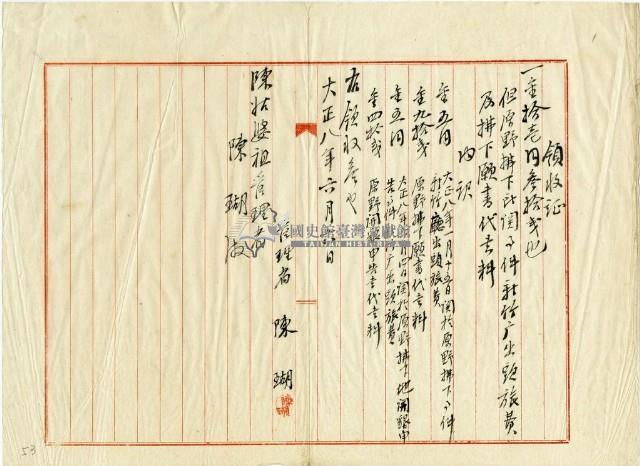 領收証
一金拾壱円參拾錢也
但原野拂下ニ関スル件新竹庁出頭旅費
及拂下願書代書料
内訳
金五円 大正八年一月十五日関於原野拂下之件
新竹廳出頭旅費
金九拾錢 原野拂下願書代書料
金五円 大正八年 月 日関於原野拂下地開墾申
告之件 庁出頭旅費
金四拾錢 原野開墾申告書代書料
右領收候也
大正八年六月 日
管理者 陳瑚
陳姑婆祖管理者
陳瑚 殿
國史館臺灣文獻館
TAIWAN HISTORICA
53